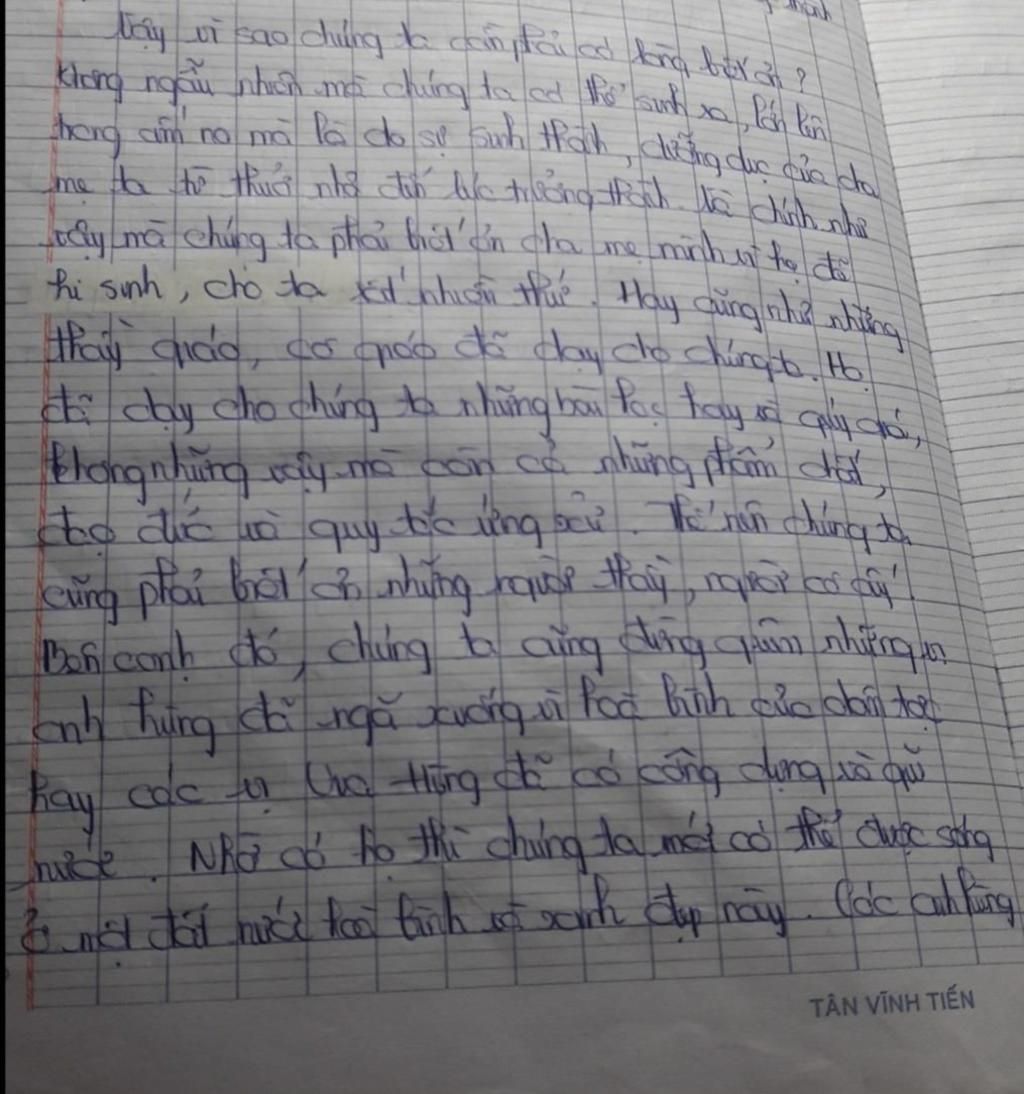 thành
Vậy vì sao chúng ta cần phải có lòng biết ơn?
Không ngẫu nhiên mà chúng ta có thể sinh ra, lớn lên
trong ấm no mà là do sự sinh thành, dưỡng dục của cha
mẹ ta từ thuở nhỏ đến lúc trưởng thành. Và chính như
vậy mà chúng ta phải biết ơn cha mẹ mình vì họ đã
hi sinh, cho ta rất nhiều thứ. Hay cũng như những
thầy giáo, cô giáo đã dạy cho chúng ta. Họ
đã dạy cho chúng ta những bài học hay và quý giá,
không những vậy mà còn cả những phẩm chất,
đạo đức và quy tắc ứng xử. Thế nên chúng ta
cũng phải biết ơn những người thầy, người cô ấy.
Bên cạnh đó, chúng ta cũng đừng quên những vị
anh hùng đã ngã xuống vì hoà bình của dân tộc
hay các vị Vua Hùng đã có công dựng và giữ
nước. Nhờ có họ thì chúng ta mới có thể được sống
ở một đất nước hoà bình và xanh đẹp này. Các anh hùng
TÂN VĨNH TIẾN